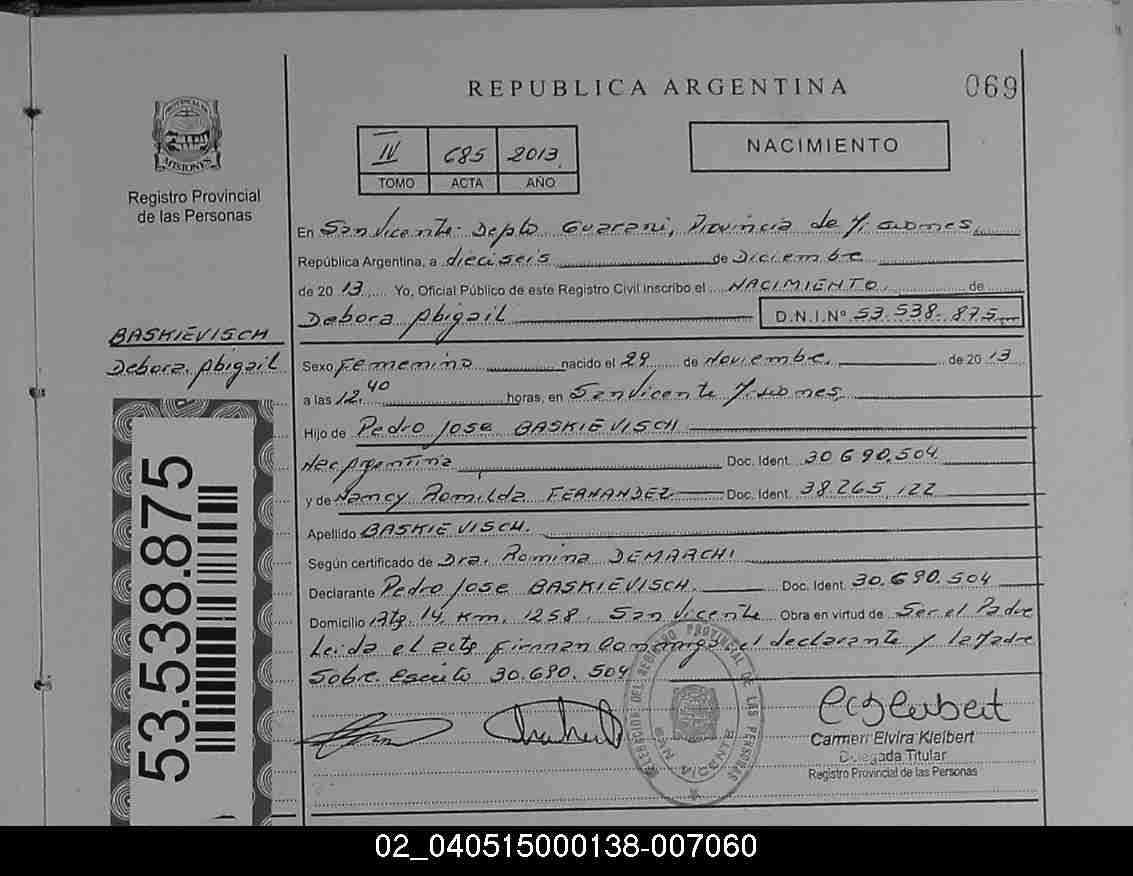 REPUBLICA ARGENTINA
069
PROVINCIA DE
MISIONES
Registro Provincial
de las Personas
IV 685 2013
TOMO ACTA AÑO
NACIMIENTO
En San Vicente Depto Guarani, Provincia de Misiones
República Argentina, a dieciseis de Diciembre
de 2013 Yo, Oficial Público de este Registro Civil inscribo el NACIMIENTO de
Debora Abigail D.N.I.Nº 53.538.875
BASKIEVISCH
Debora Abigail
Sexo Femenino nacido el 29 de Noviembre de 2013
a las 12,40 horas, en San Vicente Misiones
Hijo de Pedro Jose BASKIEVISCH
Nac Argentina Doc. Ident. 30.690.504
y de Nancy Romilda FERNANDEZ Doc. Ident. 38.265.122
Apellido BASKIEVISCH
Según certificado de Dra. Romina DEMARCHI
Declarante Pedro Jose BASKIEVISCH Doc. Ident. 30.690.504
Domicilio 14 Km. 1258, San Vicente Obra en virtud de Ser el Padre
Leida el acta firman conmigo el declarante y la Madre
Sobre escrito 30.690.504
53.538.875
DELEGACION DEL REGISTRO PROVINCIAL DE LAS PERSONAS
SAN VICENTE
Carmen Elvira Kleibert
Delegada Titular
Registro Provincial de las Personas
02_040515000138-007060